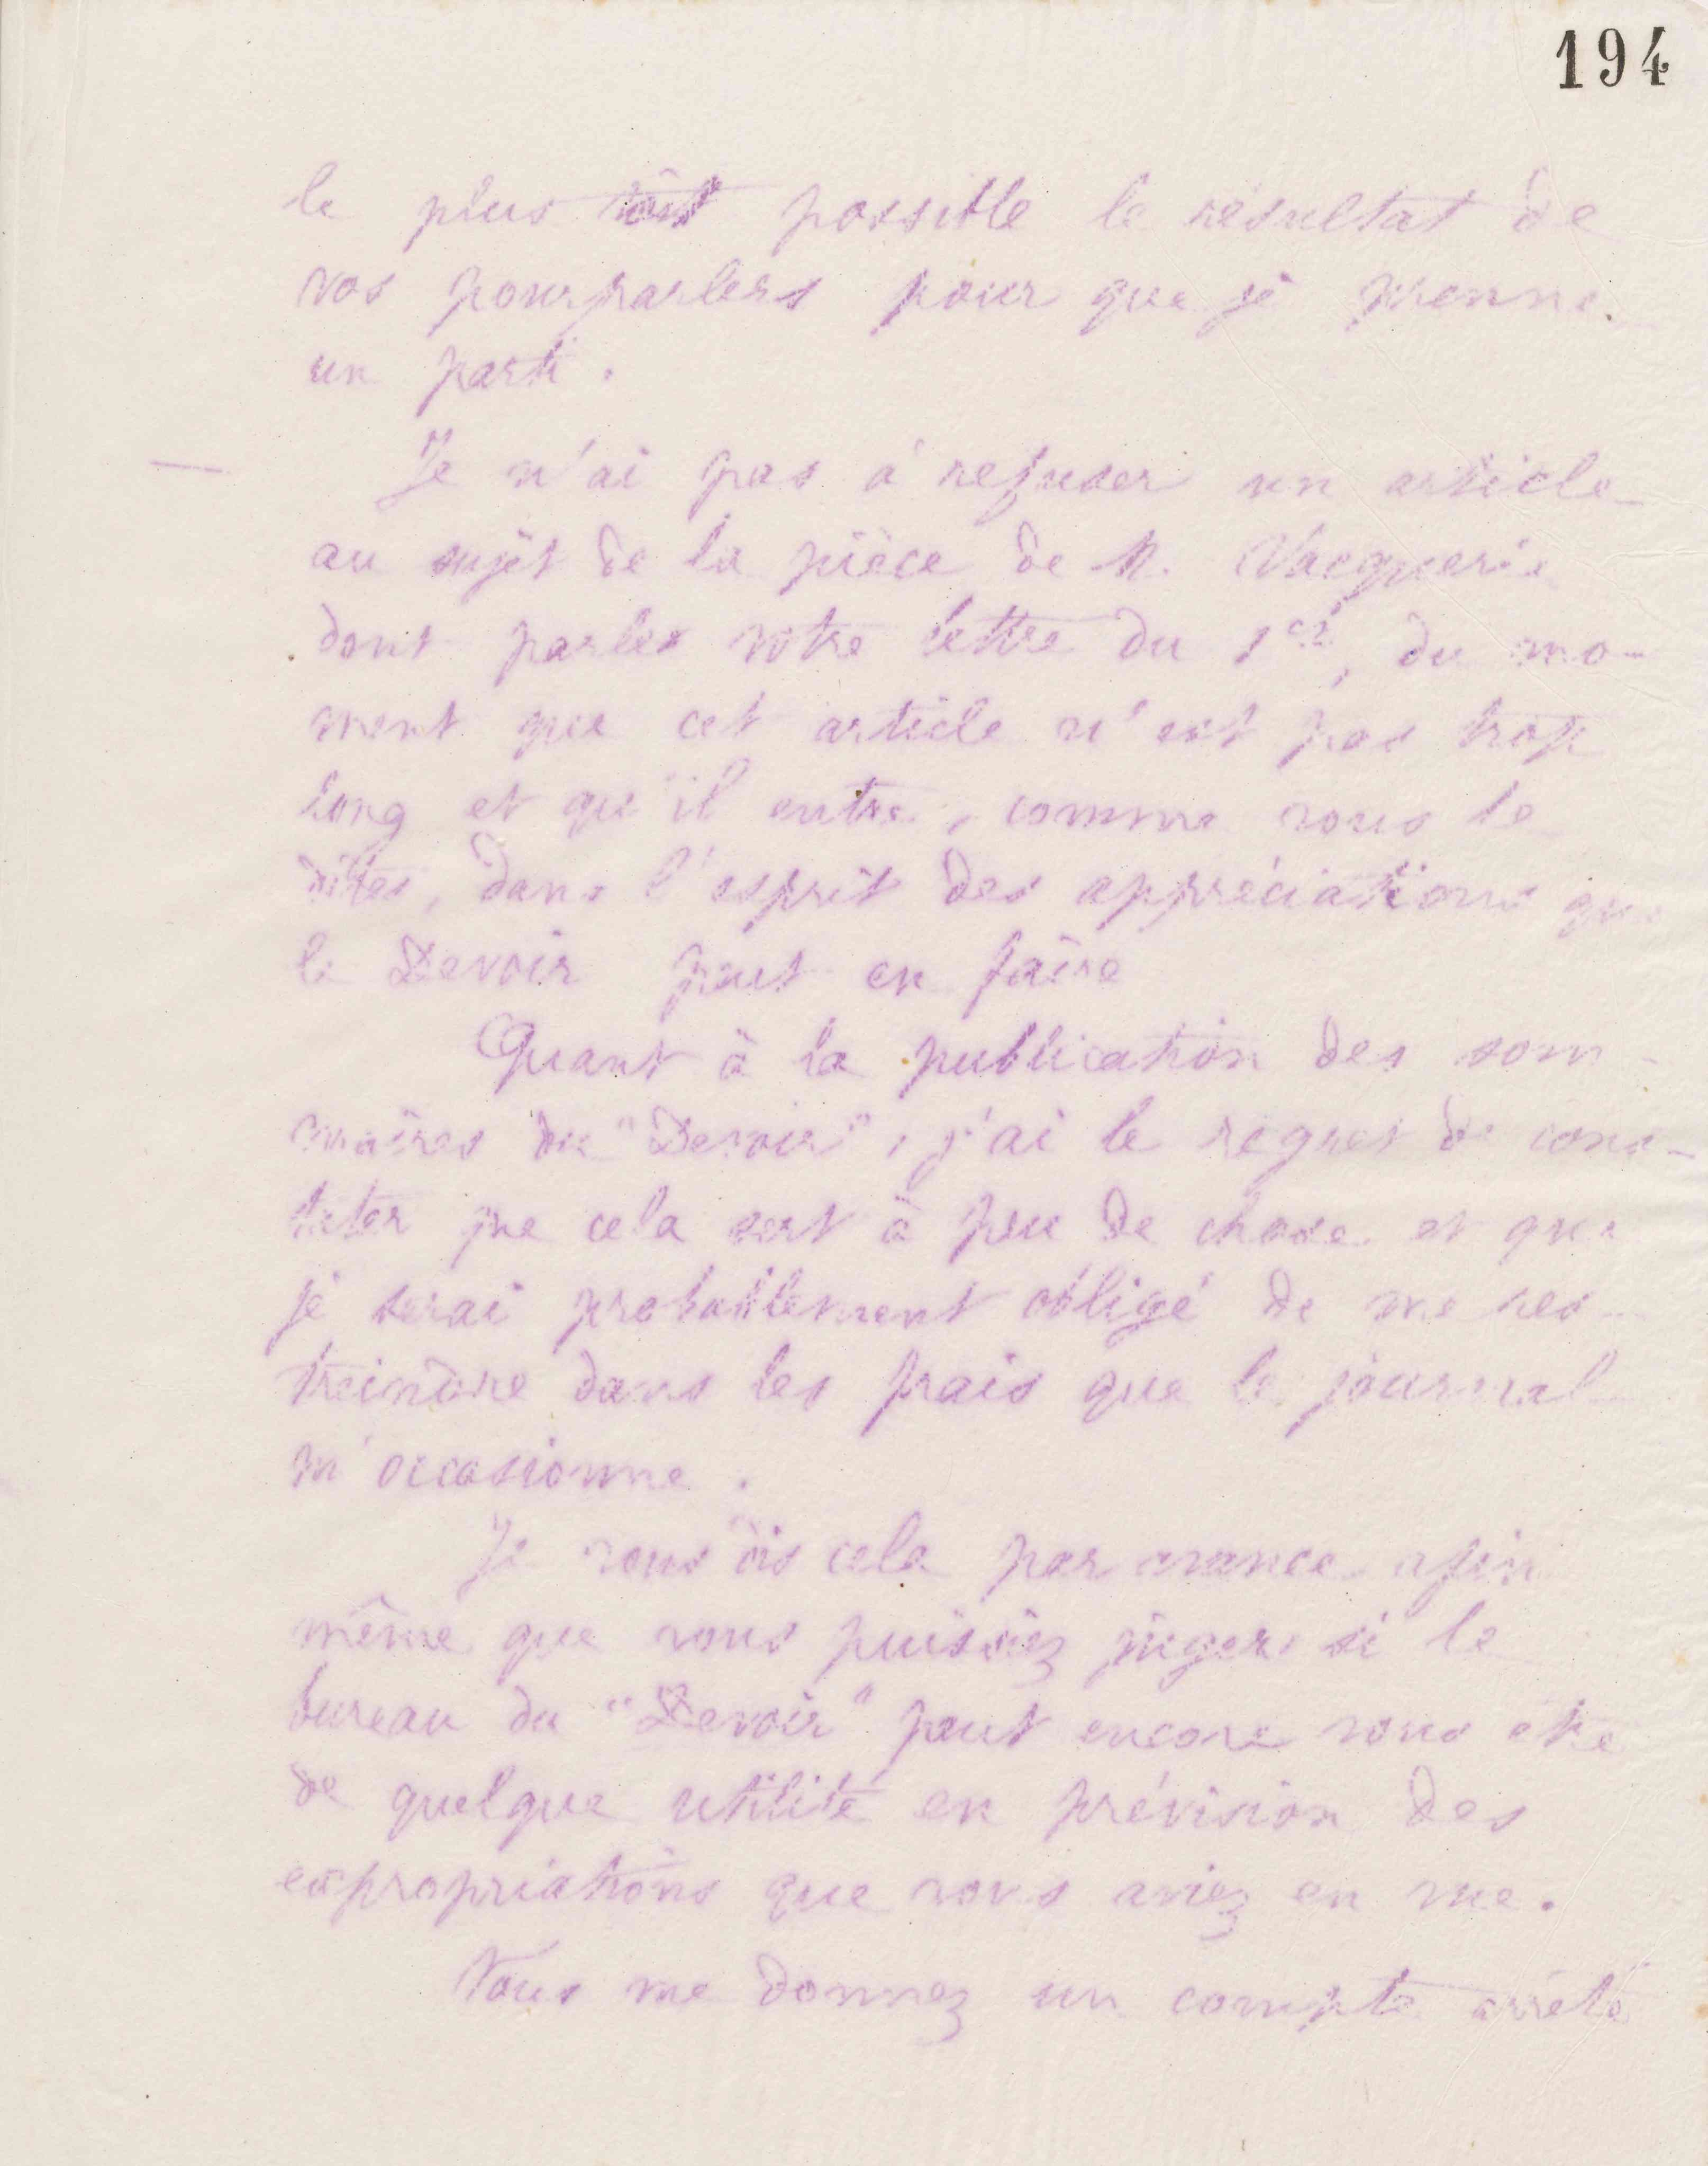 194
le plus tôt possible le résultat de
vos pourparlers pour que je prenne
un parti.
Je n'ai pas à refuser un article
au sujet de la pièce de M. Vacquerie
dont parles votre lettre du 1er, du mo-
ment que cet article n'est pas trop
long et qu'il entre, comme vous le
dites, dans l'esprit des appréciations que
le Devoir peut en faire
Quant à la publication des som-
maires du "Devoir", j'ai le regret de cons-
tater que cela sert à peu de chose et que
je serai probablement obligé de me res-
treindre dans les frais que le journal
m'occasionne.
Je vous dis cela par avance afin
même que vous puissiez juger si le
bureau du "Devoir" peut encore vous être
de quelque utilité en prévision des
expropriations que vous aviez en vue.
Vous me donnez un compte arrêté